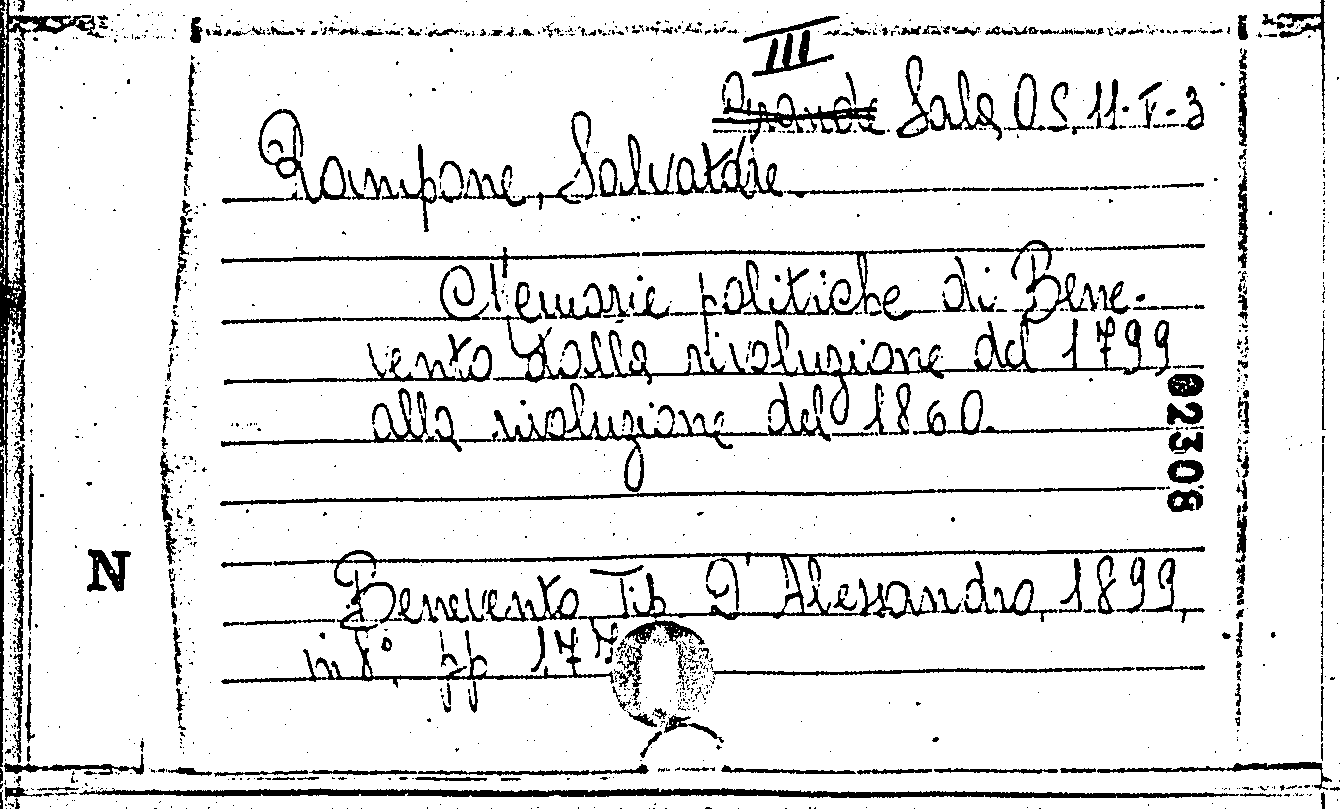 III
Grande Sala OS.11.F.3
Rampone, Salvatore.
Memorie politiche di Bene-
vento dalla rivoluzione del 1799
alla rivoluzione del 1860.
02308
N
Benevento Tip D'Alessandro, 1899,
in 8°, pp 177